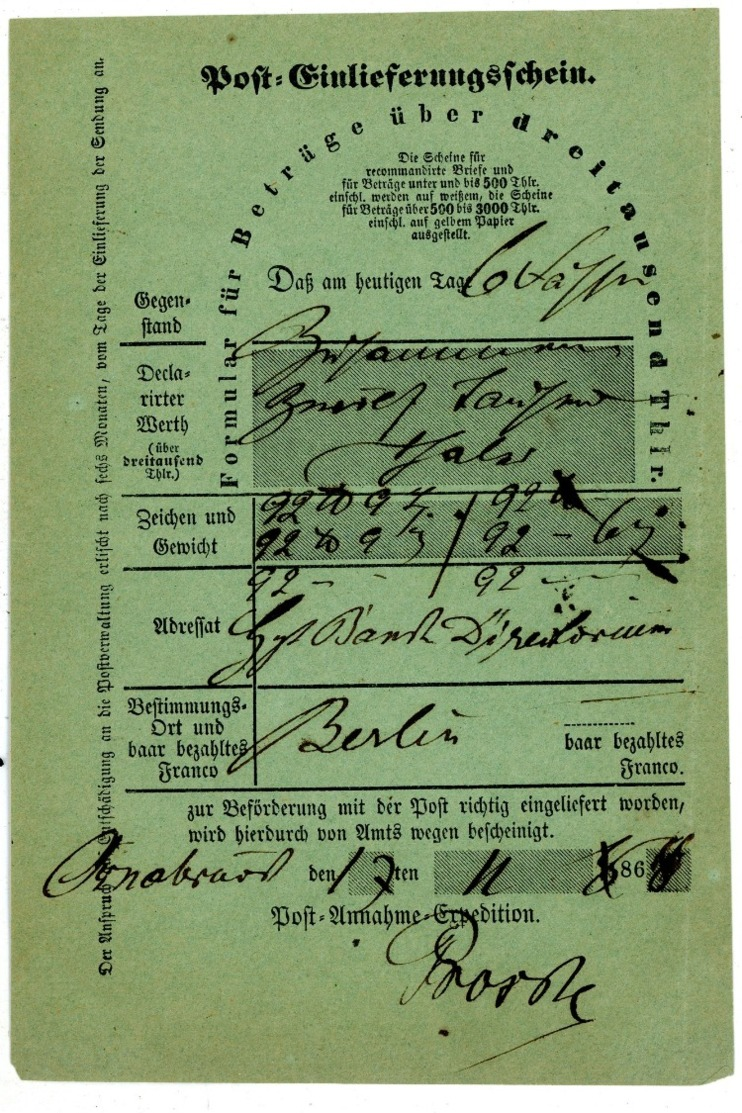 Post-Einlieferungsschein.
Formular für Beträge über dreitausend Thlr.
Die Scheine für
recommandirte Briefe und
für Beträge unter und bis 500 Thlr.
einschl. werden auf weißem, die Scheine
für Beträge über 500 bis 3000 Thlr.
einschl. auf gelbem Papier
ausgestellt.
Daß am heutigen Tage 6
Gegen-
stand
Zusammen
Decla-
rirter
Werth
(über
dreitausend
Thlr.)
Zwölf Tausend
Thaler
Zeichen und
Gewicht
92 9 92
92 9 92 -
92 - - 92 -
Adressat
Bank Directorium
Bestimmungs-
Ort und
baar bezahltes
Franco
Berlin
baar bezahltes
Franco.
zur Beförderung mit der Post richtig eingeliefert worden,
wird hierdurch von Amts wegen bescheinigt.
Osnabrück den 17ten 11 186
Post-Annahme-Expedition.
Der Anspruch auf Entschädigung an die Postverwaltung erlischt nach sechs Monaten, vom Tage der Einlieferung der Sendung an.